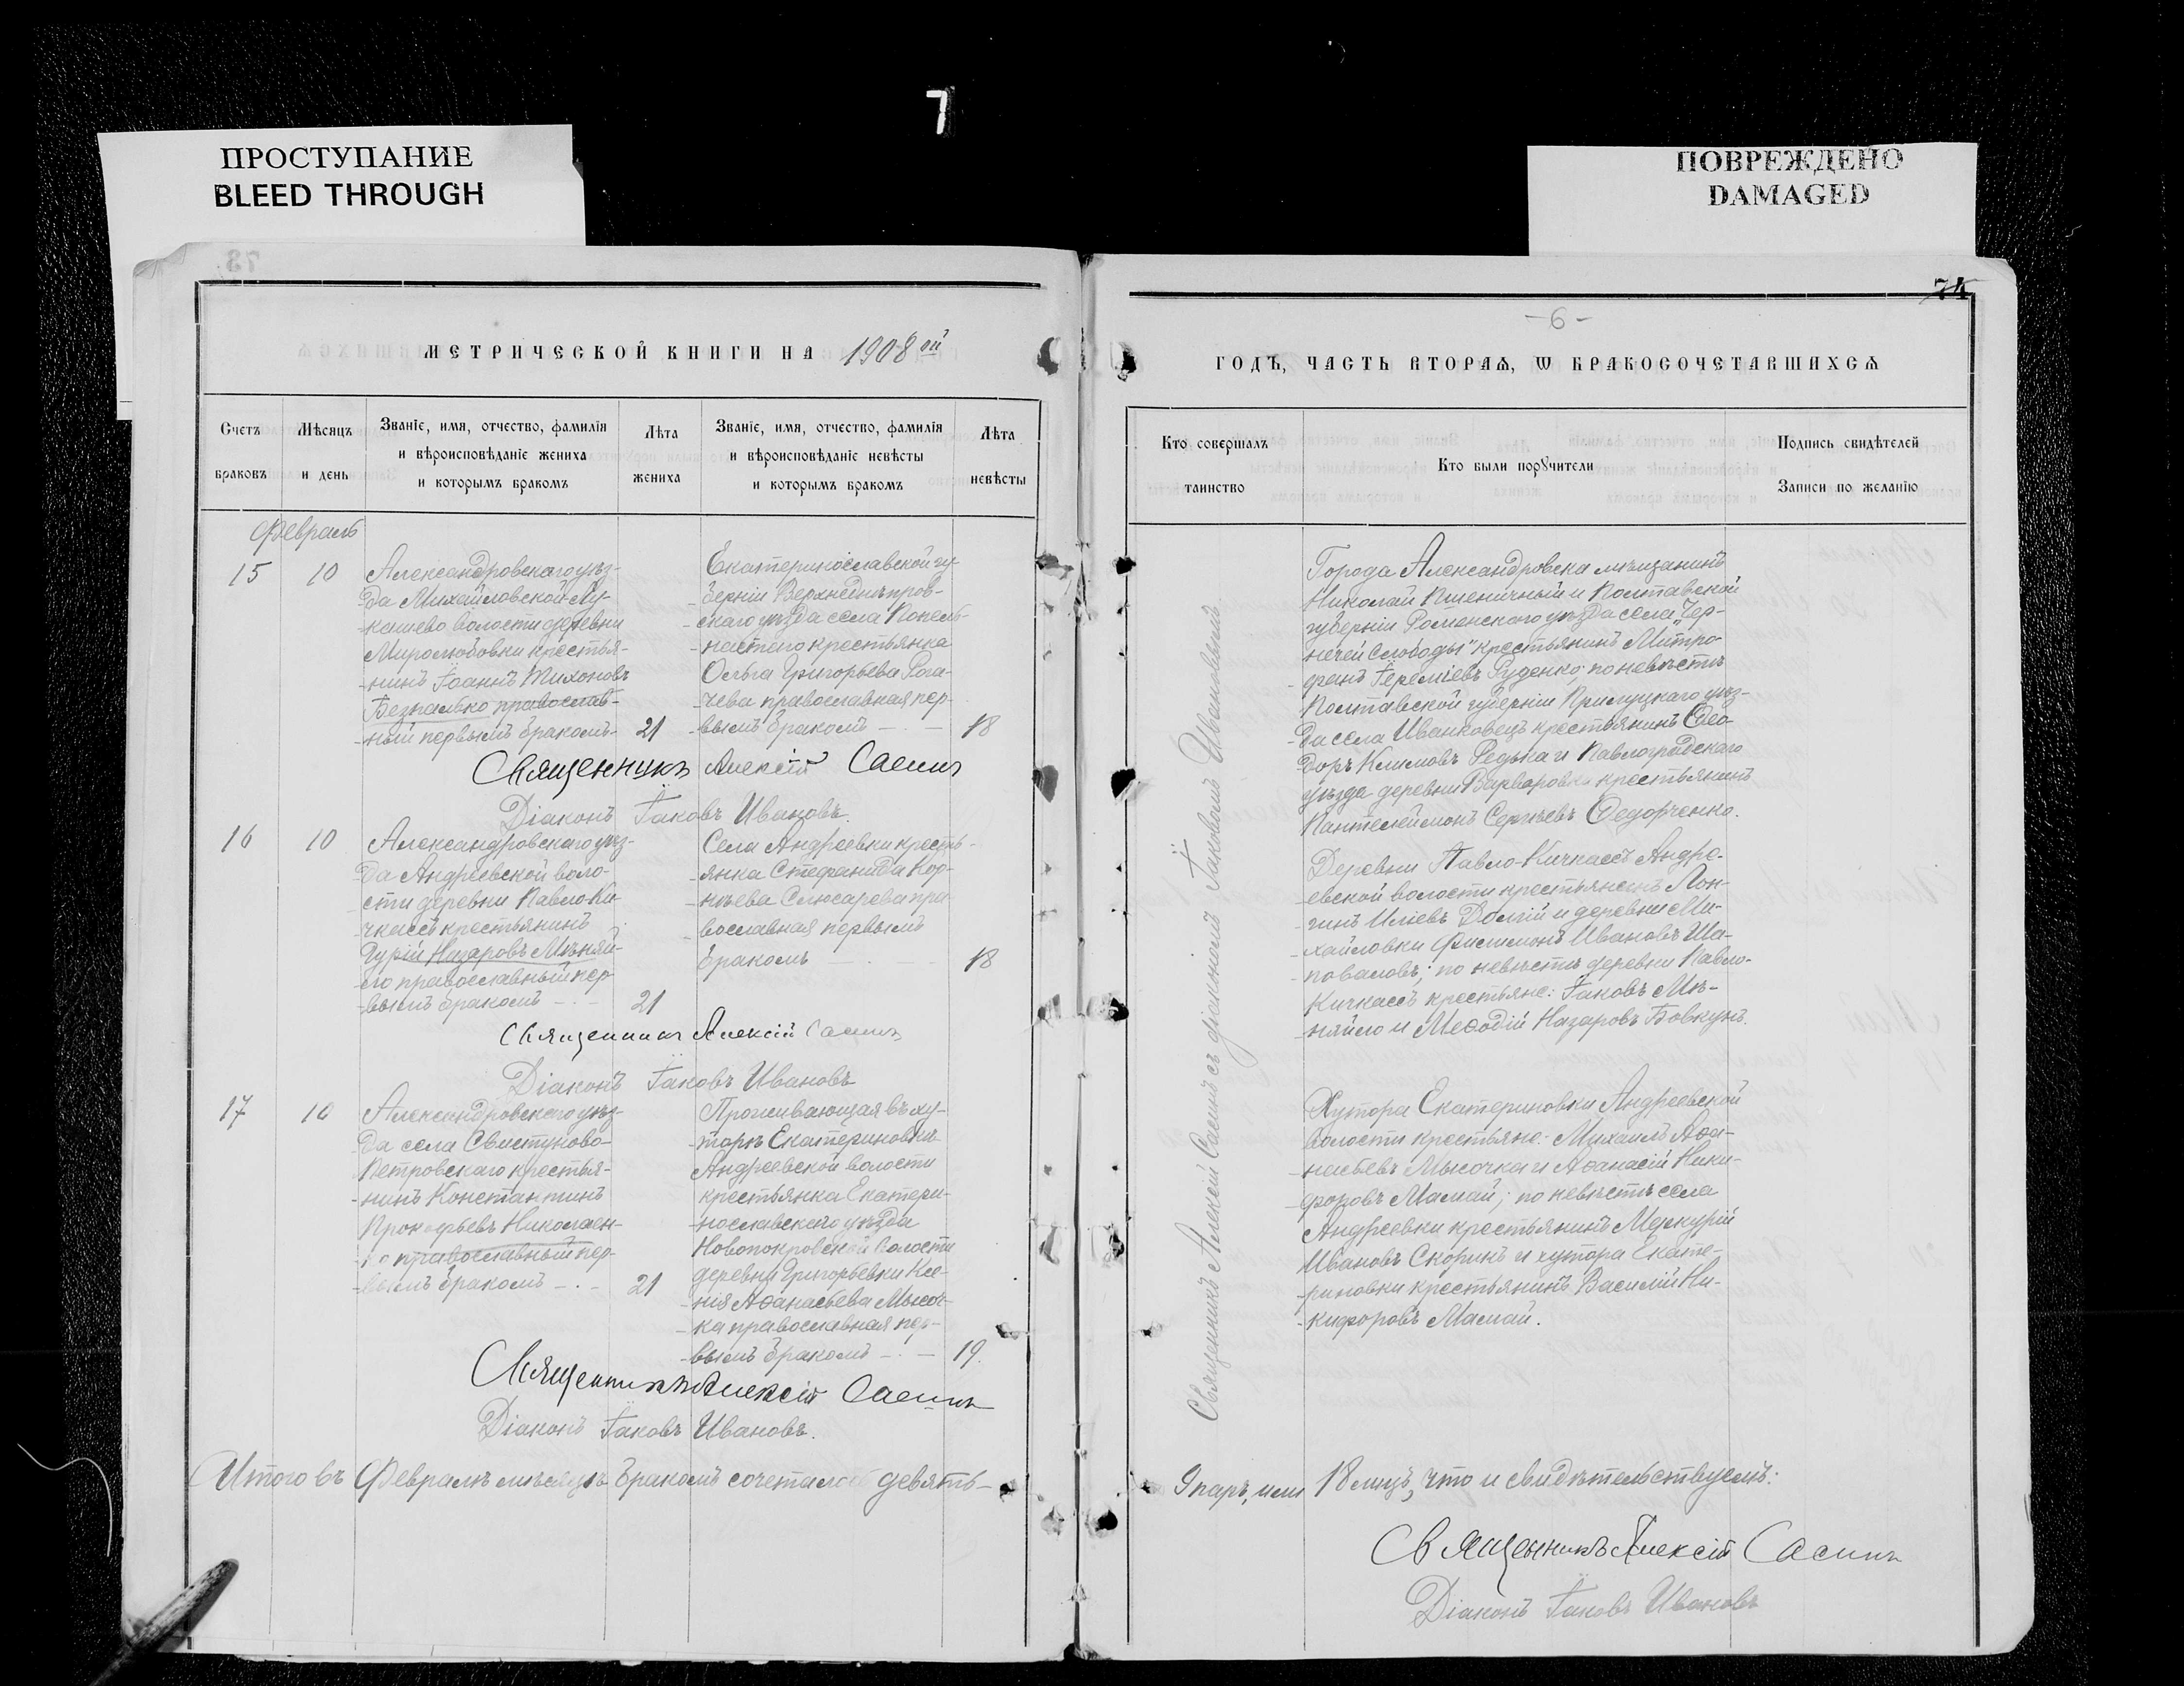 7
ПРОСТУПАНИЕ
BLEED THROUGH
ПОВРЕЖДЕНО
DAMAGED
МЕТРИЧЕСКОЙ КНИГИ НА 1908 ой
Счетъ браковъ
Мѣсяцъ и день
Званіе, имя, отчество, фамилія
и вѣроисповѣданіе жениха
и которымъ бракомъ
Лѣта жениха
Званіе, имя, отчество, фамилія
и вѣроисповѣданіе невѣсты
и которымъ бракомъ
Лѣта невѣсты
Февраль
15
10
Александровскаго уѣз-
да Михайловской Лу-
-кашево волости деревни
Миролюбовки крестья-
-нинъ Іоаннъ Тихоновъ
Безпалько православ-
-ный первымъ бракомъ-
21
Екатеринославской гу-
-берніи Верхнеднѣпров-
-скаго уѣзда села Попель-
-настаго крестьянка
Ольга Григорьева Рога-
-чева православная пер-
-вымъ бракомъ
18
Священникъ Алексій Сасинъ
Діаконъ Іаковъ Ивановъ.
16
10
Александровскаго уѣз-
да Андреевской воло-
сти деревни Павло-Ки-
чкассъ крестьянинъ
Гурій Назаровъ Мѣняй-
-ло православный пер-
-вымъ бракомъ
21
Села Андреевки кресть-
-янка Стефанида Кор-
-нѣева Слюсарева пра-
вославная первымъ
бракомъ
18
Священникъ Алексій Сасинъ
Діаконъ Іаковъ Ивановъ
17
10
Александровскаго уѣз-
да села Свистуново-
Петровскаго крестья-
-нинъ Константинъ
Прокофьевъ Николаен-
-ко православный пер-
-вымъ бракомъ
21
Проживающая въ ху-
-торѣ Екатериновкѣ
Андреевской волости
крестьянка Екатери-
-нославскаго уѣзда
Новопокровской волости
деревни Григорьевки Ксе-
-нія Аѳанасьева Мысоч-
-ка православная пер-
-вымъ бракомъ
19.
Священникъ Алексій Сасинъ
Діаконъ Іаковъ Ивановъ.
Итого въ Февралѣ мѣсяцѣ бракомъ сочеталось девять-
74
-6-
ГОДЪ, ЧАСТЬ ВТОРАѦ, Ѡ БРАКОСОЧЕТАВШИХСѦ
Кто совершалъ таинство
Кто были порꙋчители
Подпись свидѣтелей
Записи по желанію
Священникъ Алексій Сасинъ съ діакономъ Іаковомъ Ивановымъ
Города Александровска мѣщанинъ
Николай Пшеничный и Полтавской
губерніи Роменскаго уѣзда села „Чер-
нечей Слободы" крестьянинъ Митро-
-фанъ Іереміевъ Руденко; по невѣстѣ
Полтавской губерніи Прилуцкаго уѣз-
-да села Иванковецъ крестьянинъ Ѳео-
доръ Климовъ Редька и Павлоградскаго
уѣзда деревни Варваровки крестьянинъ
Пантелеймонъ Сергѣевъ Ѳедорченко.
Деревни Павло-Кичкассъ Андре-
евской волости крестьянинъ Лон-
-гинъ Иліевъ Долгій и деревни Ми-
-хайловки Филимонъ Ивановъ Ша-
-поваловъ; по невѣстѣ деревни Павло-
Кичкассъ крестьяне: Іаковъ Мѣ-
-няйло и Меѳодій Назаровъ Бовкунъ.
Хутора Екатериновки Андреевской
волости крестьяне: Михаилъ Аѳа-
-насьевъ Мысочка и Аѳанасій Ники-
форовъ Мамай; по невѣстѣ села
Андреевки крестьянинъ Меркурій
Ивановъ Скорикъ и хутора Екате-
-риновки крестьянинъ Василій Ни-
-кифоровъ Мамай.
9 паръ, или 18 лицъ, что и свидѣтельствуемъ:
Священникъ Алексій Сасинъ
Діаконъ Іаковъ Ивановъ